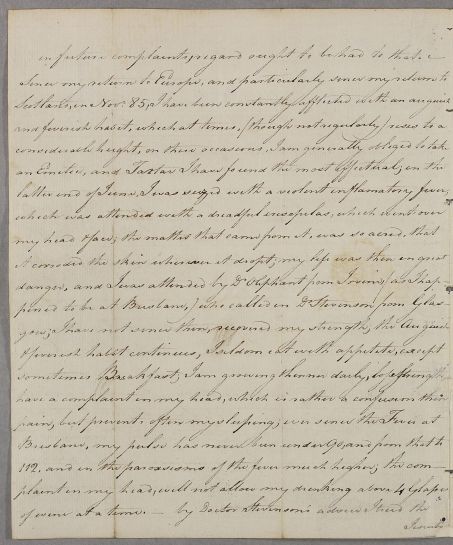 in future complaints, regard ought to be had to that. —
Since my return to Europe, and particularly since my return to
Scotland, in Novr. 85, I have been constantly afflicted with an aguish
and feverish habit, which at times, (though not regularly) rises to a
considerable height, on these occasions, I am generally obliged to take
an Emetic, and Tartar I have found the most effectual; in the
latter end of June, I was seized with a violent inflamatory fever,
which was attended with a dreadful which went over
my head & face; the matter that came from it, was so acred, that
it corroded the skin wherever it dropt; my life was then in great
danger, and I was attended by Dr Oliphant from Irvine, (as I hap-
pened to be at Brisbane,) who called in Dr Stevenson from Glas-
gow; I have not since then, recovered my strength, the Aguish
& feverish habit continues, I seldom eat with appetite, except
sometimes Breakfast; I am growing thinner daily,
have a complaint in my head, which is rather a confusion than
pain, but prevents often my sleeping; ever since the Fever at
Brisbane, my pulse has never been under 90, and from that to
112, and in the paroxisms of the fever much higher; the com-
plaint in my head, will not allow my drinking above 4 Glasses
of wine at a time. — by Doctor Stevenson's advice I tried the